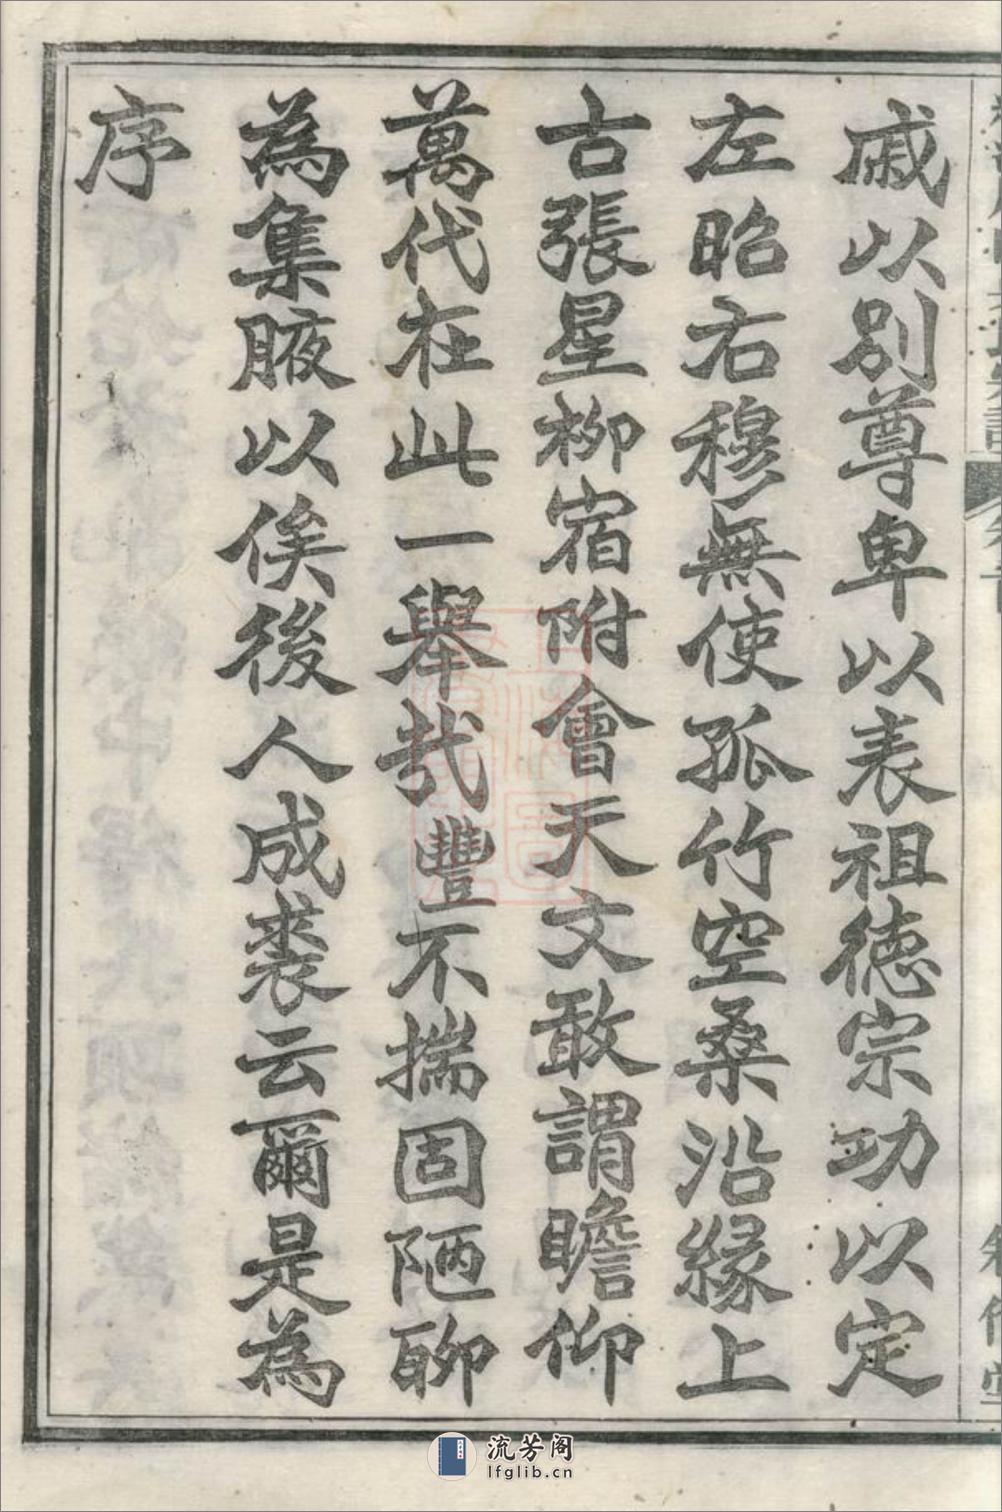 戚以別尊卑以表祖徳宗功以定
左昭右穆無使孤竹空桑沿緣上
古張星柳宿附會天文敢謂瞻仰
萬代在此一舉哉豐不揣固陋聊
為集腋以俟後人成裘云爾是為
序
流芳阁
lfglib.cn